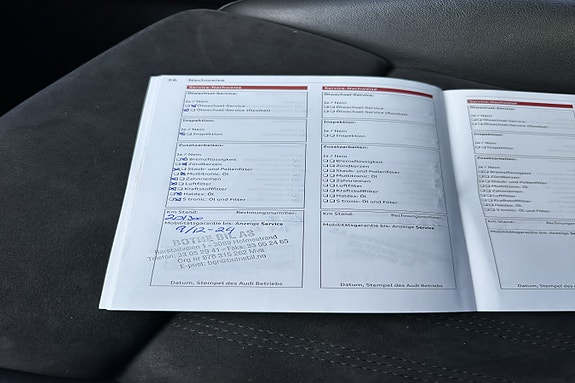 56 Nachweise
Service-Nachweise
Ölwechsel-Service:
Ja / Nein
Ölwechsel-Service
Ölwechsel-Service (flexibel)
Inspektion:
Ja / Nein
Inspektion
Zusatzarbeiten:
Ja / Nein
Bremsflüssigkeit
Zündkerzen
Staub- und Pollenfilter
Multitronic: Öl
Zahnriemen
Luftfilter
Kraftstofffilter
Haldex: Öl
S tronic: Öl und Filter
Km Stand:
Rechnungsnummer:
Mobilitätsgarantie bis: Anzeige Service
9/12-24
BOTNE BIL AS
3089 Holmestrand
Telefon: 33 05 29 41 - Faks: 33 05 24 60
Org nr 876 315 262 Mva
E-post: bgr@botnebil.no
Datum, Stempel des Audi Betriebs
Service-Nachweise
Ölwechsel-Service:
Ja / Nein
Ölwechsel-Service
Ölwechsel-Service (flexibel)
Inspektion:
Ja / Nein
Inspektion
Zusatzarbeiten:
Ja / Nein
Bremsflüssigkeit
Zündkerzen
Staub- und Pollenfilter
Multitronic: Öl
Zahnriemen
Luftfilter
Kraftstofffilter
Haldex: Öl
S tronic: Öl und Filter
Km Stand:
Mobilitätsgarantie bis: Anzeige
Datum, Stempel des Audi Betriebs
Service-Nachweise
Ölwechsel-Service:
Ja / Nein
Ölwechsel-Service
Ölwechsel-Service (flexibel)
Inspektion:
Ja / Nein
Inspektion
Zusatzarbeiten:
Ja / Nein
Bremsflüssigkeit
Zündkerzen
Staub- und Pollenfilter
Multitronic: Öl
Zahnriemen
Luftfilter
Kraftstofffilter
Haldex: Öl
S tronic: Öl und Filter
Km Stand:
Mobilitätsgarantie bis:
Datum, Stempel des